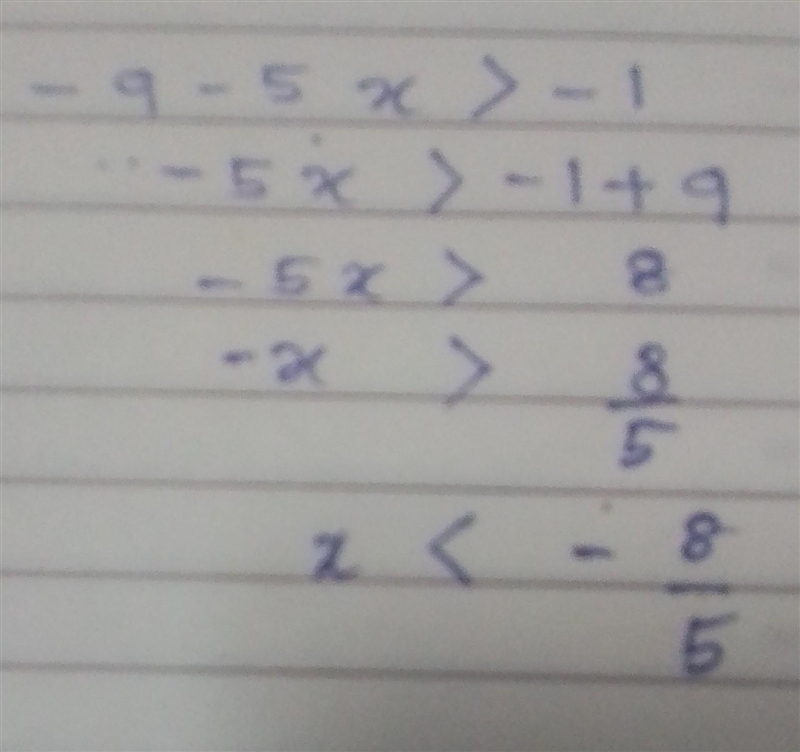 - 9 - 5 x > - 1
- 5 x > - 1 + 9
- 5 x > 8
- x > 8/5
x < - 8/5